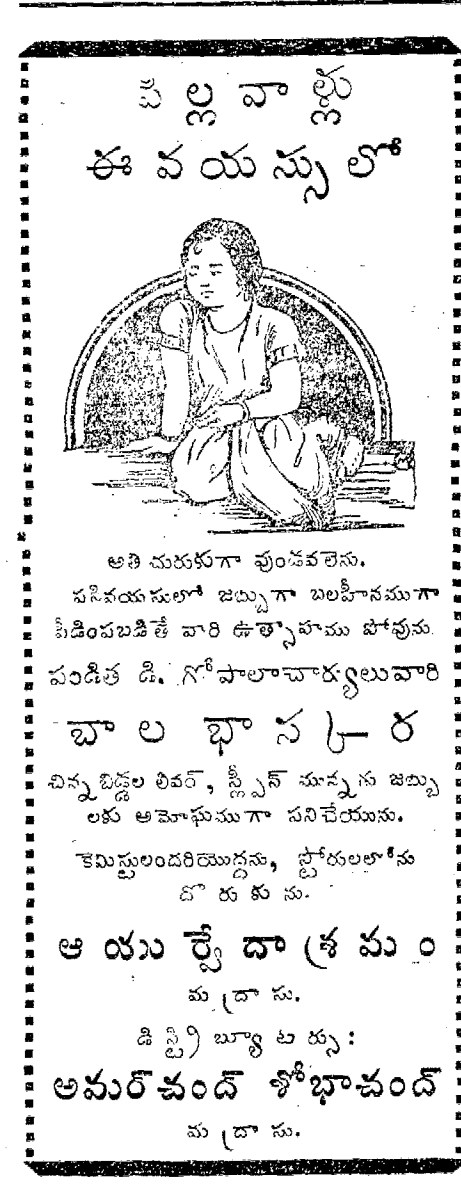 పిల్లవాళ్లు
ఈ వయస్సులో
అతి చురుకుగా వుండవలెను.
పసివయసులో జబ్బుగా బలహీనముగా
పీడింపబడితే వారి ఉత్సాహము పోవును.
పండిత డి. గోపాలాచార్యులువారి
బాల భాస్కర
చిన్నబిడ్డల లివర్, స్ప్లీన్ మున్నగు జబ్బు
లకు అమోఘముగా పనిచేయును.
కెమిస్టులందరియొద్దను, స్టోరులలోను
దొరుకును.
ఆయుర్వేదాశ్రమం
మద్రాసు.
డిస్ట్రిబ్యూటర్సు:
అమర్‌చంద్ శోభాచంద్
మద్రాసు.